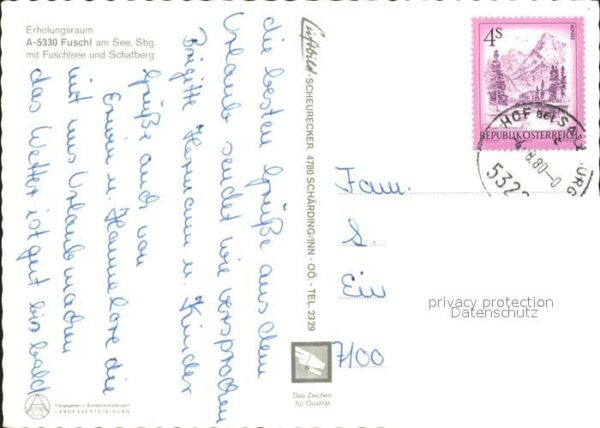 Erholungsraum
A-5330 Fuschl am See, Sbg.
mit Fuschlsee und Schafberg
die besten Grüße aus dem
Urlaub sendet wie versprochen
Brigitte Hermann u. Kinder
Grüße auch von
Erwin u. Hannelore die
mit uns Urlaub machen
das Wetter ist gut bis bald
Luftbild SCHEURECKER, 4780 SCHÄRDING/INN - OÖ. - TEL. 23 29
4S
REPUBLIK ÖSTERREICH
HOF BEI S
URG
.8.80-0
532
Fam.
S.
Ein
7100
privacy protection
Datenschutz
Das Zeichen
für Qualität
LANDESVERTEIDIGUNG